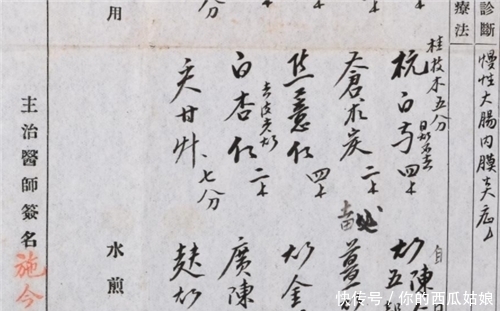 診斷
療法
慢性大腸內膜炎症
桂枝木五分
杭白芍 四
蒼朮炭 二
焦薏仁 四
白杏仁 二
去皮尖炒
炙甘艸、七分
自
陳
炒五
薑
炒金
廣陳
麩炒
用
水煎
主治醫師簽名
施今
快传号/你的西瓜姑娘